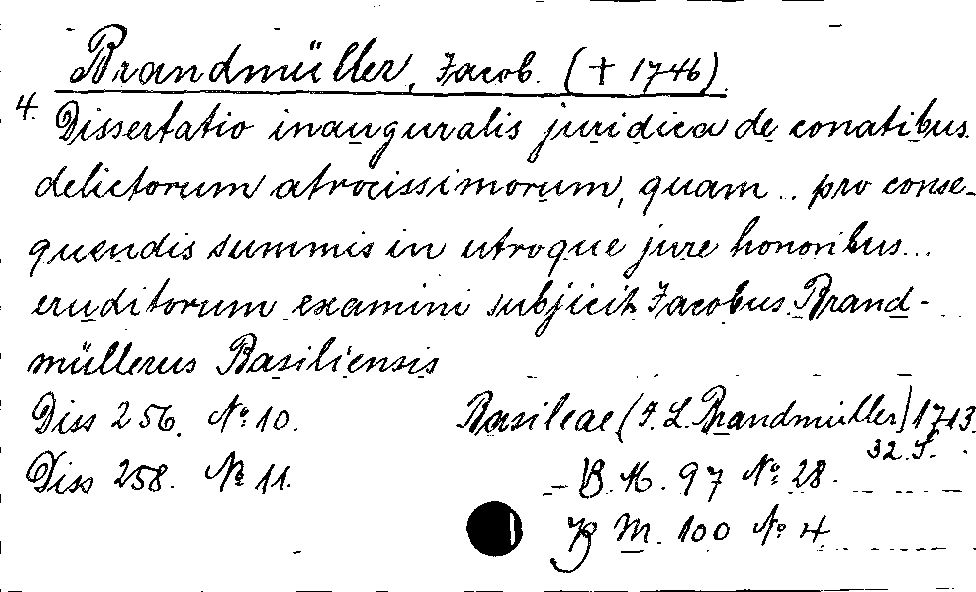 Brandmüller, Jacob. († 1746)
4. Dissertatio inauguralis juridica de conatibus
delictorum atrocissimorum, quam .. pro conse-
quendis summis in utroque jure honoribus...
eruditorum examini subjicit Jacobus Brand-
müllerus Basiliensis
Diss 256. No 10. Basileae (J. L. Brandmüller) 1713.
32. S.
Diss 258. No 11. B. M. 97 No 28.
B M. 100 No 4.